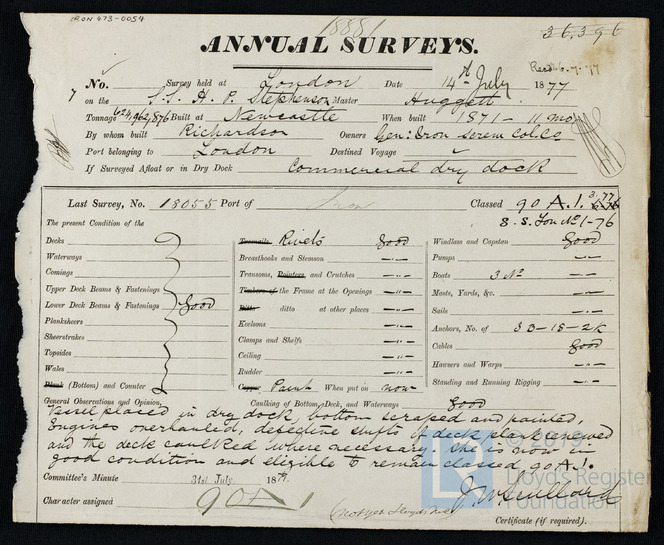 IRON 473-0054
18881
36,396
ANNUAL SURVEYS.
Recd 6.7.77
7 No. Survey held at London Date 14th July 1877
on the S.S. H. P. Stephenson Master Huggett
Tonnage 624, 962, 876 Built at Newcastle When built 1871 - 11 mo
By whom built Richardson Owners Gen: Iron Screw Col. Co
Port belonging to London Destined Voyage
If Surveyed Afloat or in Dry Dock Commercial dry dock
Last Survey, No. 18055 Port of Iron Classed 90 A.1. 3.77
S.S. Lon No 1-76
The present Condition of the
Decks
Waterways
Comings
Upper Deck Beams & Fastenings
Lower Deck Beams & Fastenings Good
Planksheers
Sheerstrakes
Topsides
Wales
Plank (Bottom) and Counter
Treenails Rivets Good
Breasthooks and Stemson -"-
Transoms, Pointers and Crutches -"-
Timbers of the Frame at the Openings -"-
Ditto ditto at other places -"-
Keelsons -"-
Clamps and Shelfs -"-
Ceiling -"-
Rudder -"-
Copper Paint When put on now
Caulking of Bottom, Deck, and Waterways Good
Windlass and Capstan Good
Pumps -"-
Boats 3 No -"-
Masts, Yards, &c. -"-
Sails -"-
Anchors, No. of 3 B - 1 S - 2 K
Cables Good
Hawsers and Warps -"-
Standing and Running Rigging -"-
General Observations and Opinion,
Vessel placed in dry dock bottom scraped and painted,
Engines overhauled, defective shifts of deck plank renewed
and the deck caulked where necessary. She is now in
good condition and eligible to remain classed 90 A.1.
Committee's Minute 31st July 1877.
Character assigned 90 A 1
Certificate (if required).
© 2019
Lloyd's Register
Foundation